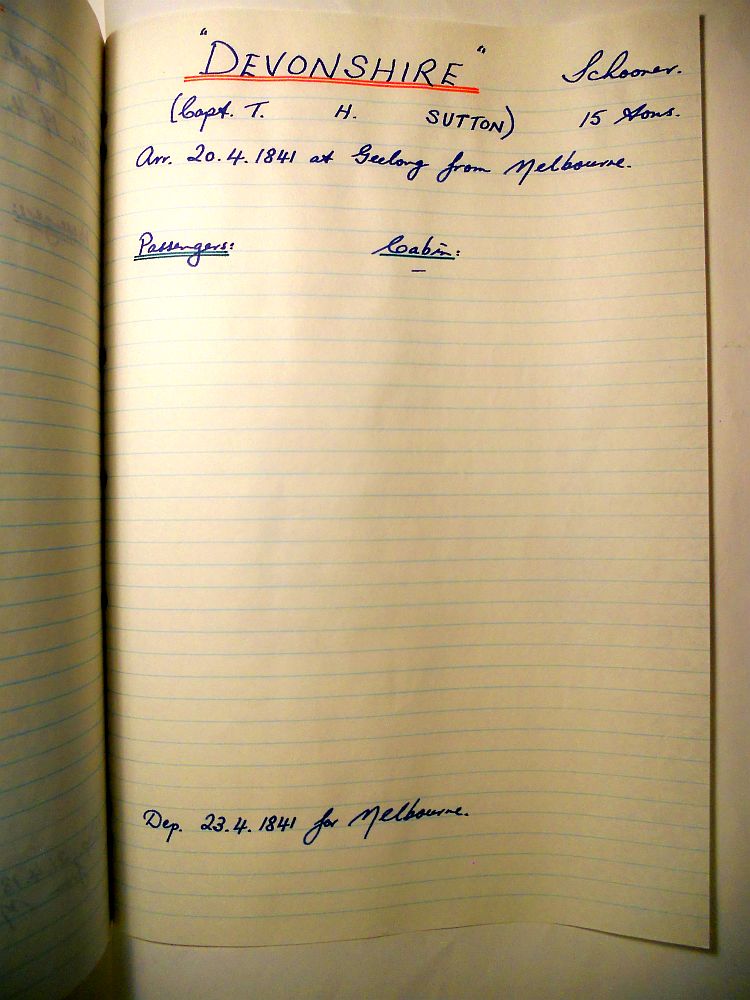 "DEVONSHIRE" Schooner.
(Capt. T. H. SUTTON) 15 tons.
Arr. 20.4.1841 at Geelong from Melbourne.
Passengers: Cabin:
—
Dep. 23.4.1841 for Melbourne.